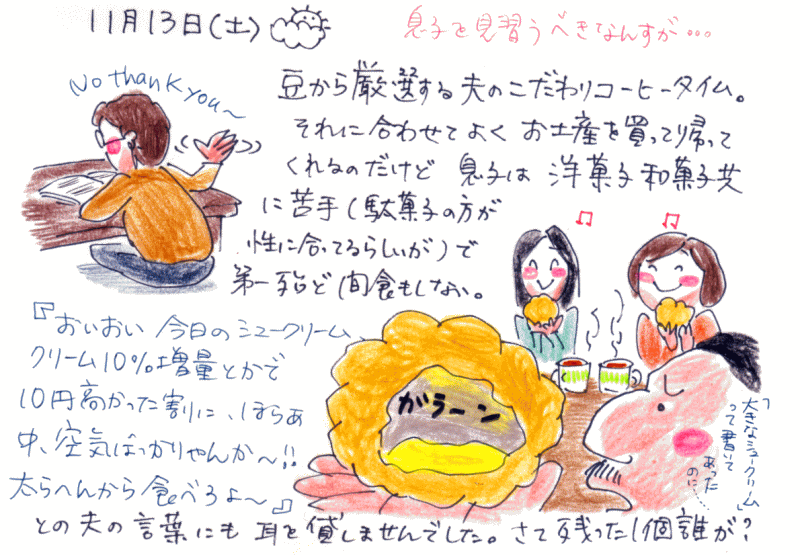 11月13日(土)
息子を見習うべきなんすが…
No thank you~
豆から厳選する夫のこだわりコーヒータイム。
それに合わせてよくお土産を買って帰って
くれるのだけど 息子は 洋菓子和菓子共
に苦手(駄菓子の方が
性に合ってるらしいが)で
第一殆ど間食もしない。
『おいおい 今日のシュークリーム、
クリーム10%増量とかで
10円高かった割に、ほらぁ
中、空気ばっかりやんか~!!
太らへんから食べろよ~』
がらーン
「大きなシュークリーム」
って書いて
あった
のに…
との夫の言葉にも耳を貸しませんでした。さて残った1個誰が?